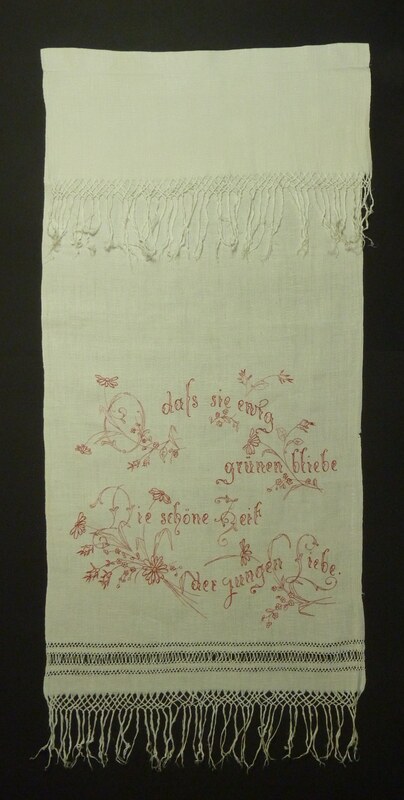 O daſs sie ewig
grünen bliebe
Die schöne Zeit
der jungen Liebe.